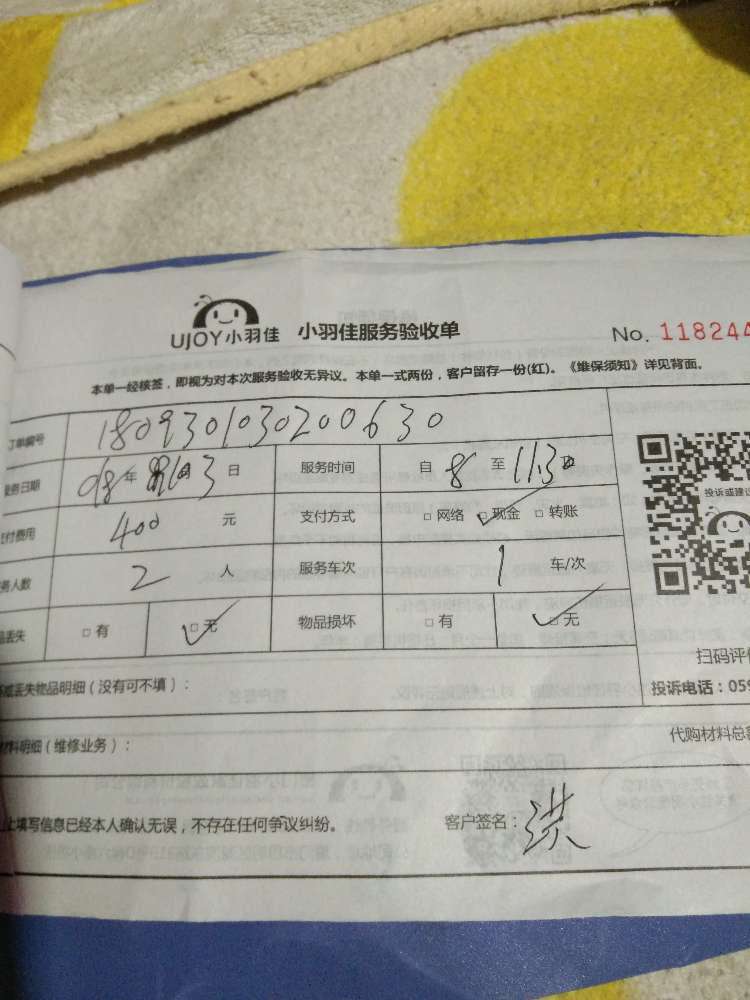 UJOY小羽佳 小羽佳服务验收单 No. 118244
本单一经核签，即视为对本次服务验收无异议。本单一式两份，客户留存一份(红)。《维保须知》详见背面。
订单编号 180930103200630
服务日期 年 3日 服务时间 自8至11:30
投诉或建议
支付费用 400元 支付方式 □网络 ☑现金 □转账
服务人数 2人 服务车次 1车/次
品丢失 □有 ☑无 物品损坏 □有 ☑无
扫码评价
坏或丢失物品明细（没有可不填）： 投诉电话：059
材料明细（维修业务）： 代购材料总
以上填写信息已经本人确认无误，不存在任何争议纠纷。 客户签名：洪